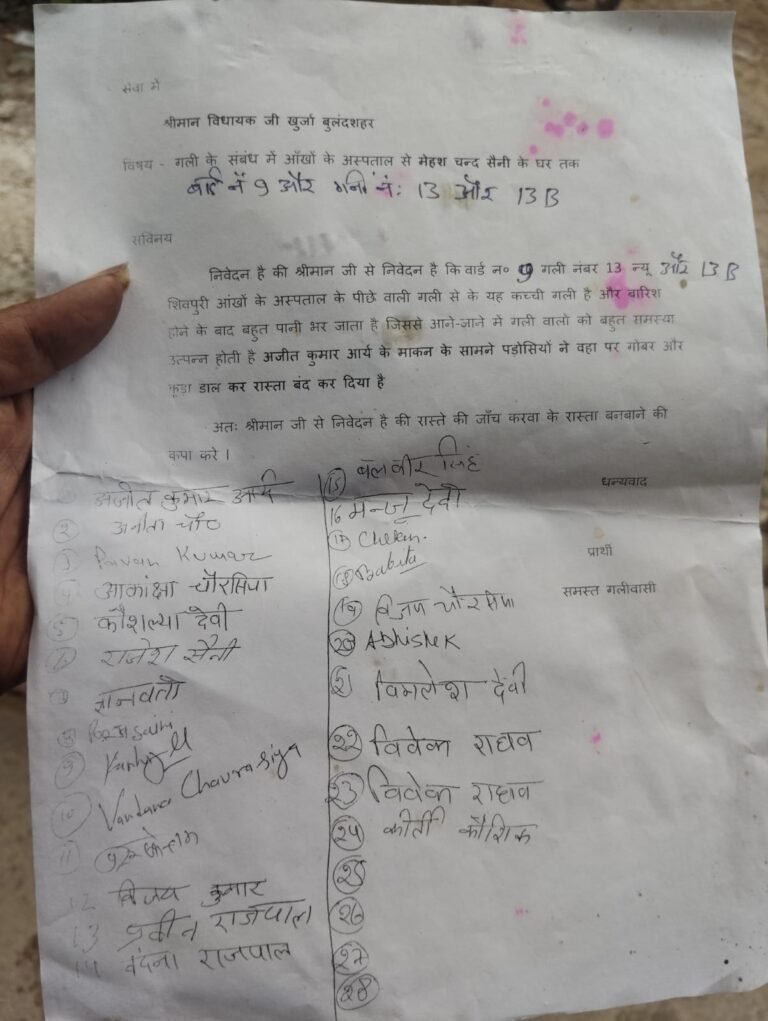 सेवा में
श्रीमान विधायक जी खुर्जा बुलंदशहर
विषय - गली के संबंध में आँखों के अस्पताल से मेहश चन्द सैनी के घर तक
वार्ड नं 9 और गली नं: 13 और 13 B
सविनय
निवेदन है की श्रीमान जी से निवेदन है कि वार्ड न० 9 गली नंबर 13 न्यू और 13 B
शिवपुरी आंखों के अस्पताल के पीछे वाली गली से के यह कच्ची गली है और बारिश
होने के बाद बहुत पानी भर जाता है जिससे आने-जाने में गली वालो को बहुत समस्या
उत्पन्न होती है अजीत कुमार आर्य के माकन के सामने पड़ोसियों ने वहा पर गोबर और
कूड़ा डाल कर रास्ता बंद कर दिया है
अतः श्रीमान जी से निवेदन है की रास्ते की जाँच करवा के रास्ता बनबाने की
कपा करे ।
धन्यवाद
प्रार्थी
समस्त गलीवासी
अजीत कुमार आर्य
2 अनीता
3 Pavan Kumar
4 आकांक्षा चौरसिया
5 कौशल्या देवी
6 राजेश सैनी
7 ज्ञानवती
8 Saini
9
10 Vandana Chaurasiya
11
12 विजय कुमार
13 प्रवीन राजपाल
14 वंदना राजपाल
15 बलवीर सिंह
16 मन्जू देवी
17
18 Babita
19 विजय चौरसिया
20 Abhishek
21 विमलेश देवी
22 विवेक राघव
23 विवेक राघव
24 कीर्ती कौशिक
25
26
27
28